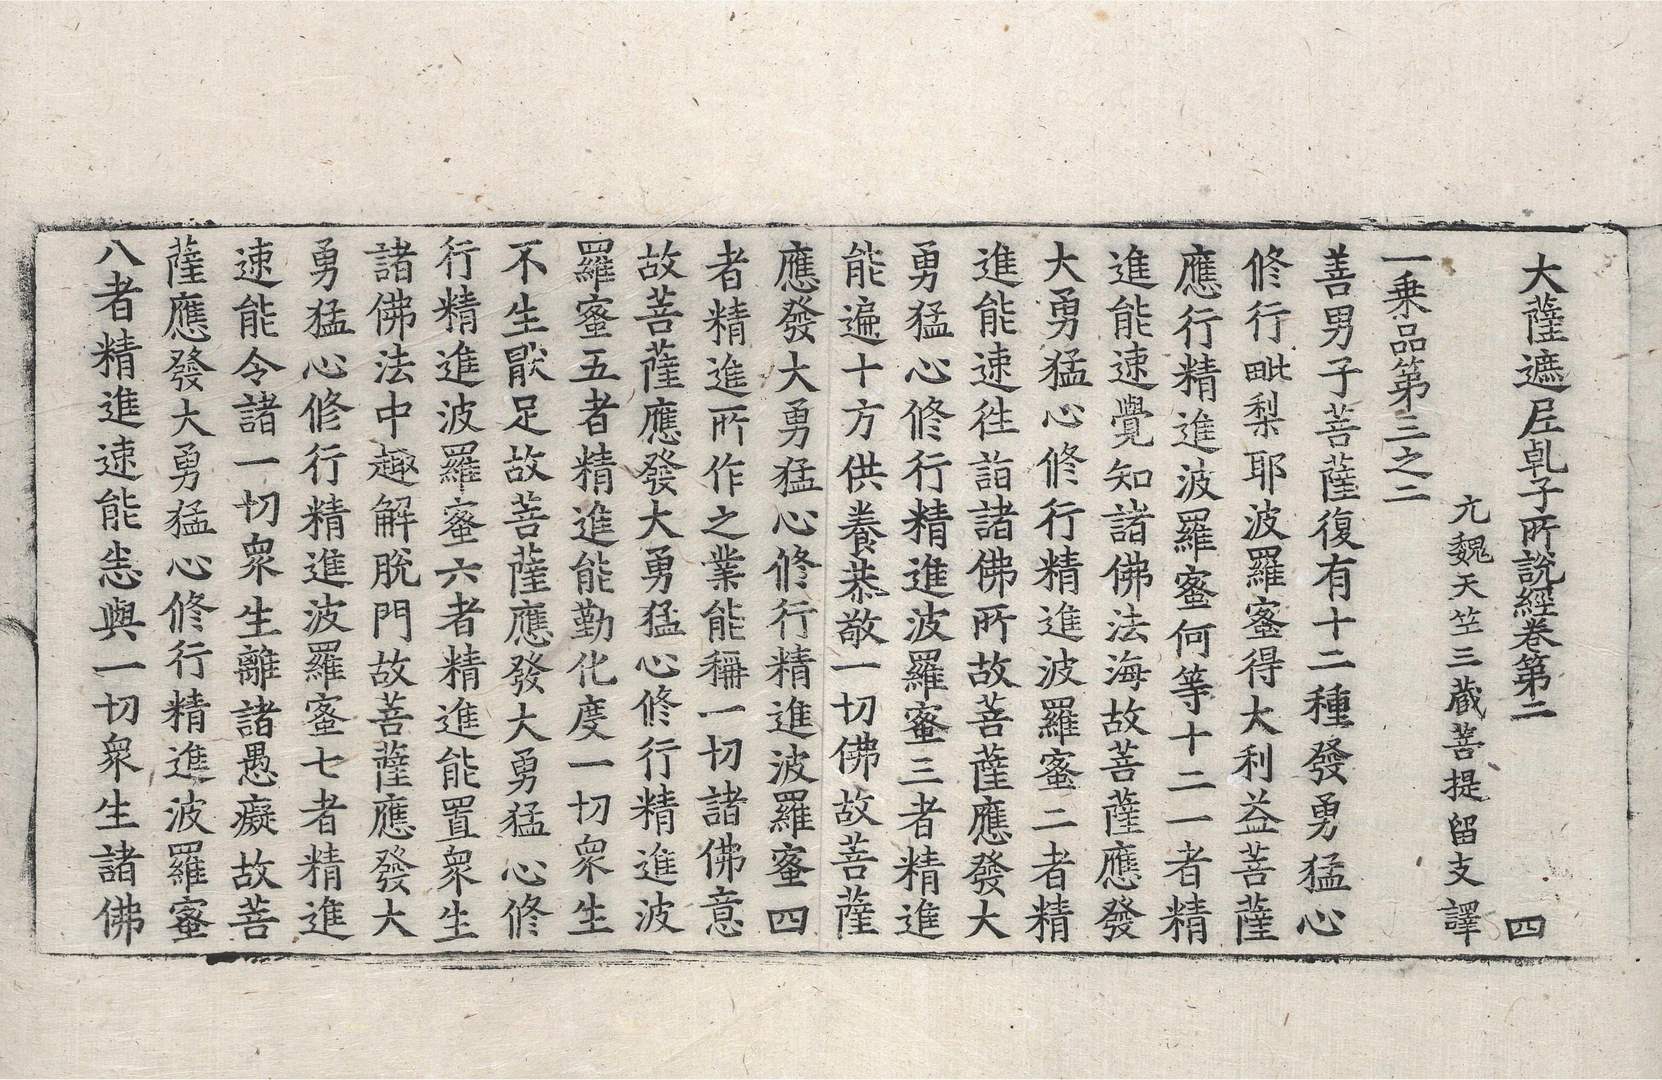 大薩遮尼乹子所說經卷第二　四
元魏天竺三藏菩提留支譯
一乗品第三之二
善男子菩薩復有十二種發勇猛心
修行毗梨耶波羅蜜得大利益菩薩
應行精進波羅蜜何等十二一者精
進能速覺知諸佛法海故菩薩應發
大勇猛心修行精進波羅蜜二者精
進能速往詣諸佛所故菩薩應發大
勇猛心修行精進波羅蜜三者精進
能遍十方供養恭敬一切佛故菩薩
應發大勇猛心修行精進波羅蜜四
者精進所作之業能稱一切諸佛意
故菩薩應發大勇猛心修行精進波
羅蜜五者精進能勤化度一切衆生
不生猒足故菩薩應發大勇猛心修
行精進波羅蜜六者精進能置衆生
諸佛法中趣解脫門故菩薩應發大
勇猛心修行精進波羅蜜七者精進
速能令諸一切衆生離諸愚癡故菩
薩應發大勇猛心修行精進波羅蜜
八者精進速能恙與一切衆生諸佛